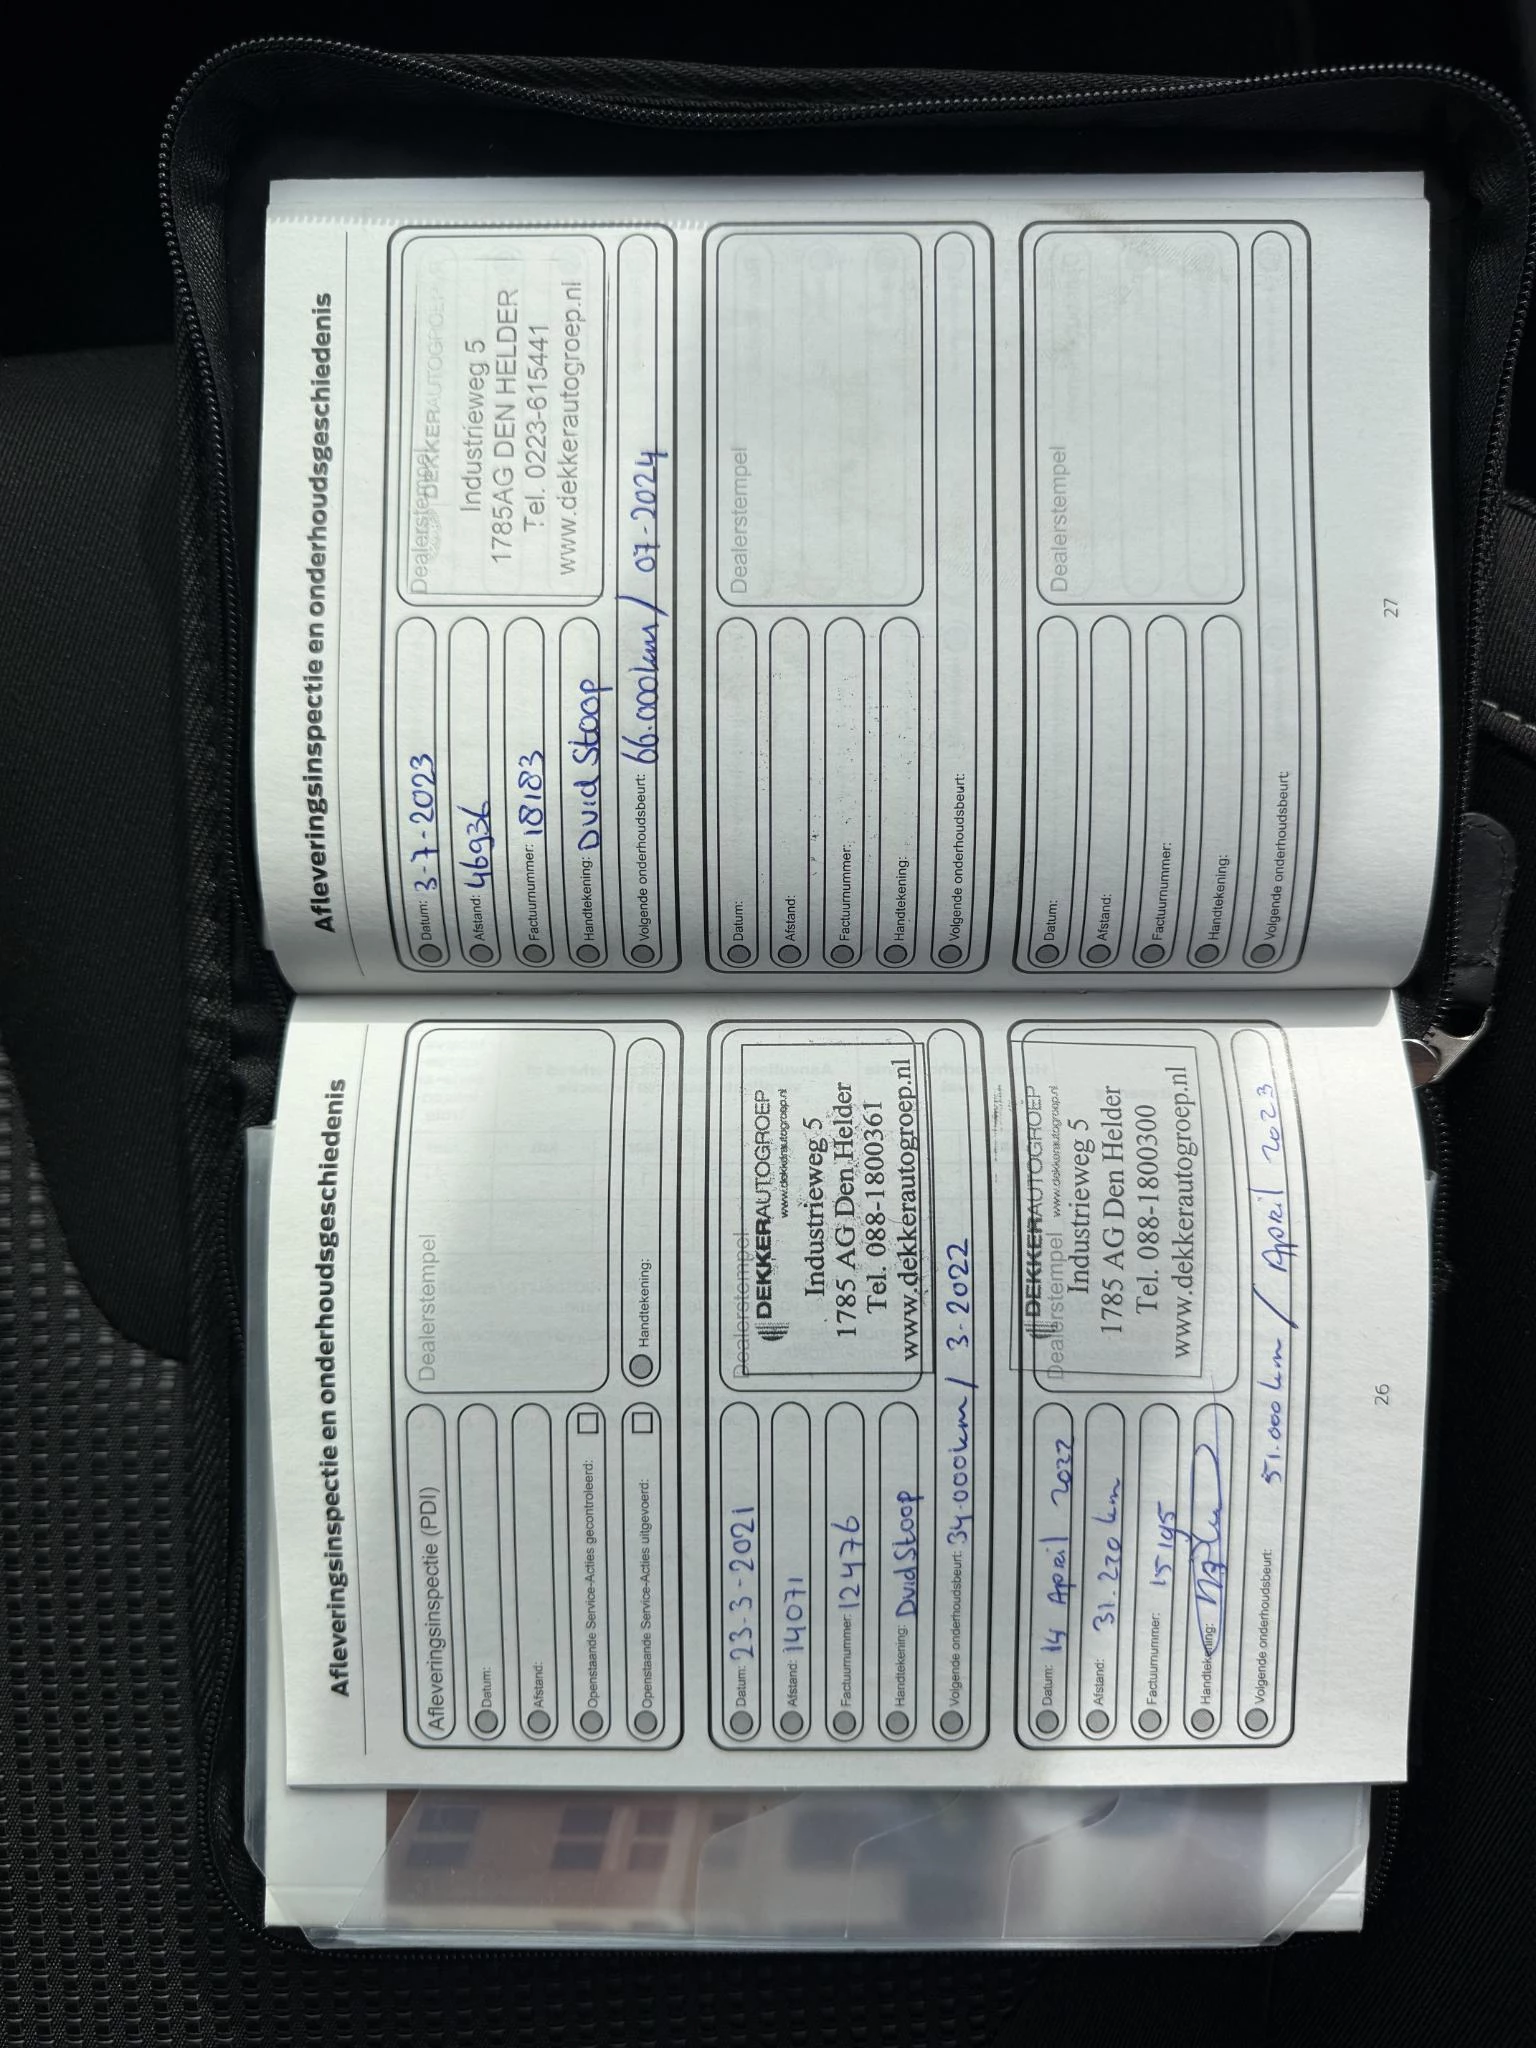 Afleveringsinspectie en onderhoudsgeschiedenis
Afleveringsinspectie (PDI)
Dealerstempel
Datum:
Afstand:
Openstaande Service-Acties gecontroleerd:
Openstaande Service-Acties uitgevoerd:
Handtekening:
Datum: 23-3-2021
Afstand: 14071
Factuurnummer: 12476
Handtekening: Dvid Stoop
Volgende onderhoudsbeurt: 34.000km / 3-2022
Dealerstempel
DEKKERAUTOGROEP
www.dekkerautogroep.nl
Industrieweg 5
1785 AG Den Helder
Tel. 088-1800361
www.dekkerautogroep.nl
Datum: 14 April 2022
Afstand: 31.220 km
Factuurnummer: 15195
Handtekening:
Volgende onderhoudsbeurt: 51.000 km / April 2023
DEKKERAUTOGROEP
Dealerstempel www.dekkerautogroep.nl
Industrieweg 5
1785 AG Den Helder
Tel. 088-1800300
www.dekkerautogroep.nl
26
Afleveringsinspectie en onderhoudsgeschiedenis
Datum: 3-7-2023
Afstand: 46936
Factuurnummer: 18183
Handtekening: Dvid Stoop
Volgende onderhoudsbeurt: 66.000km / 07-2024
Dealerstempel
DEKKERAUTOGROEP
Industrieweg 5
1785AG DEN HELDER
Tel. 0223-615441
www.dekkerautogroep.nl
Datum:
Afstand:
Factuurnummer:
Handtekening:
Volgende onderhoudsbeurt:
Dealerstempel
Datum:
Afstand:
Factuurnummer:
Handtekening:
Volgende onderhoudsbeurt:
Dealerstempel
27